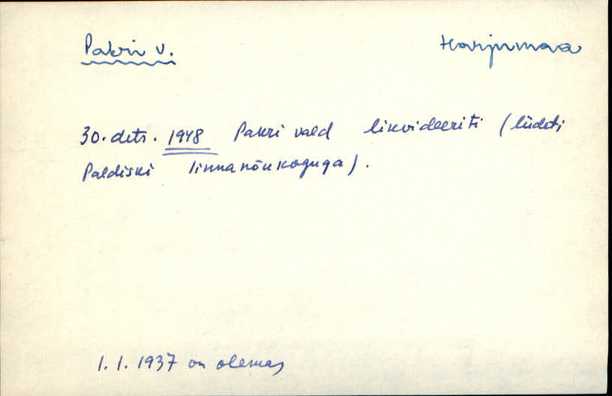 Pakri v. Harjumaa
30. dets. 1948 Pakri vald likvideeriti (liideti
Paldiski linnanõukoguga).
1.1.1937 on olemas